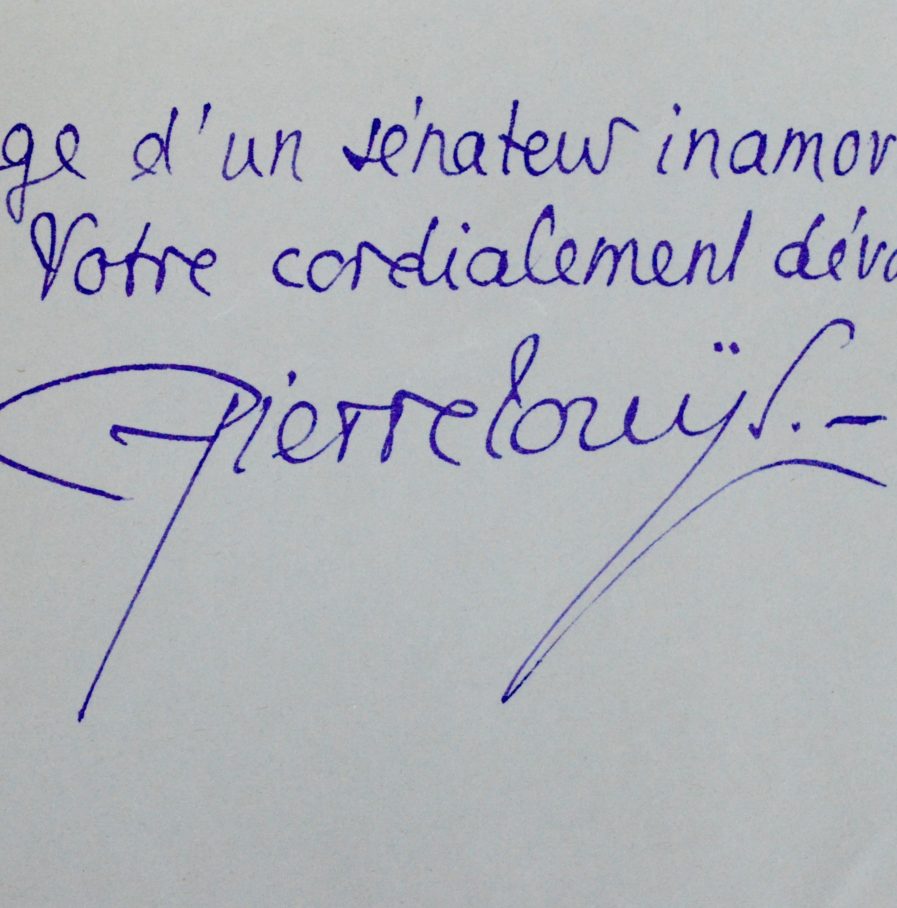 ge d'un sénateur inamov
Votre cordialement dévo
Pierre Louÿs. –